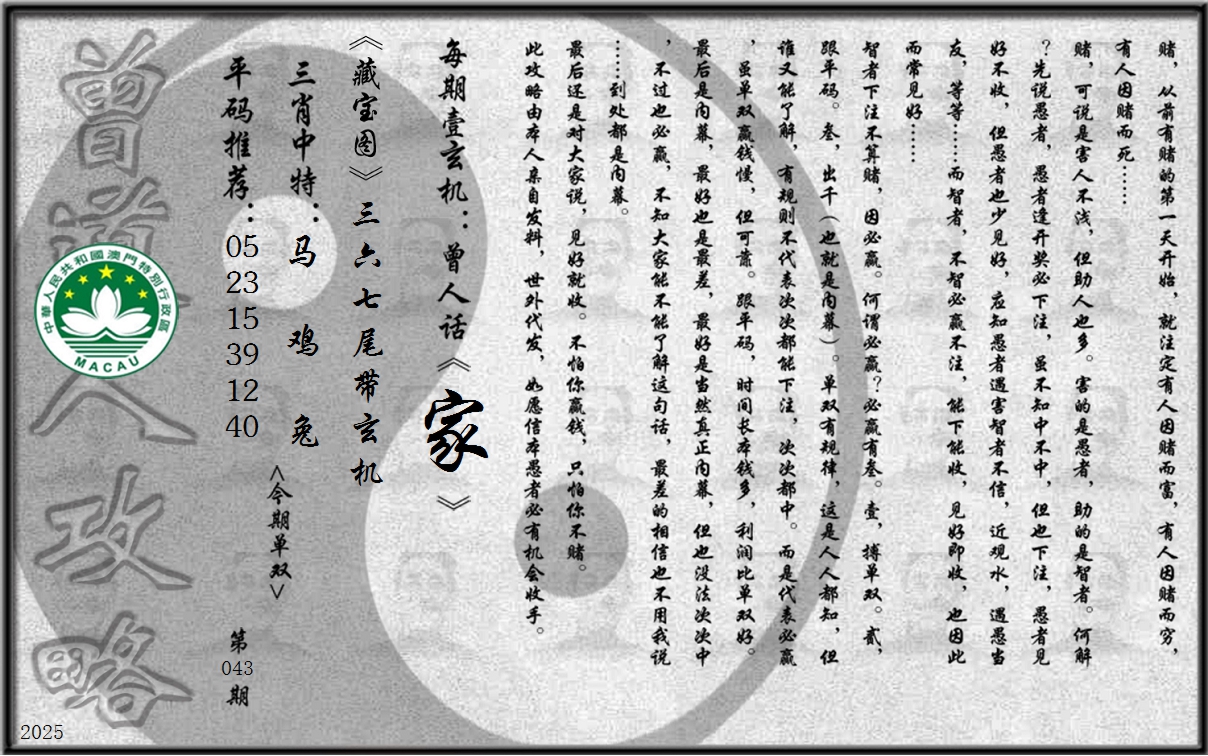 赌，从前有赌的第一天开始，就注定有人因赌而富，有人因赌而穷，
有人因赌而死……
赌，可说是害人不浅，但助人也多。害的是愚者，助的是智者。何解
？先说愚者，愚者逢开奖必下注，虽不知中不中，但也下注，愚者见
好不收，但愚者也少见好，应知愚者遇害智者不信，近观水，遇愚当
友，等等……而智者，不智必赢不注，能下能收，见好即收，也因此
而常见好……
智者下注不算赌，因必赢。何谓必赢？必赢有叁。壹，搏单双。贰，
跟平码。叁，出千（也就是内幕）。单双有规律，这是人人都知，但
谁又能了解，有规则不代表次次都能下注，次次都中。而是代表必赢
，虽单双赢钱慢，但可靠。跟平码，时间长本钱多，利润比单双好。
最后是内幕，最好也是最差，最好是当然真正内幕，但也没法次次中
，不过也必赢，不知大家能不能了解这句话，最差的相信也不用我说
……到处都是内幕。
最后还是对大家说，见好就收。不怕你赢钱，只怕你不赌。
此攻略由本人亲自发料，世外代发，如愿信本愚者必有机会收手。
每期壹玄机：曾人话《家》
《藏宝图》三六七尾带玄机
三肖中特：马 鸡 兔
<今期单双>
平码推荐：05 23 15 39 12 40
第043期
曾道人攻略
中華人民共和國澳門特別行政區
MACAU
2025